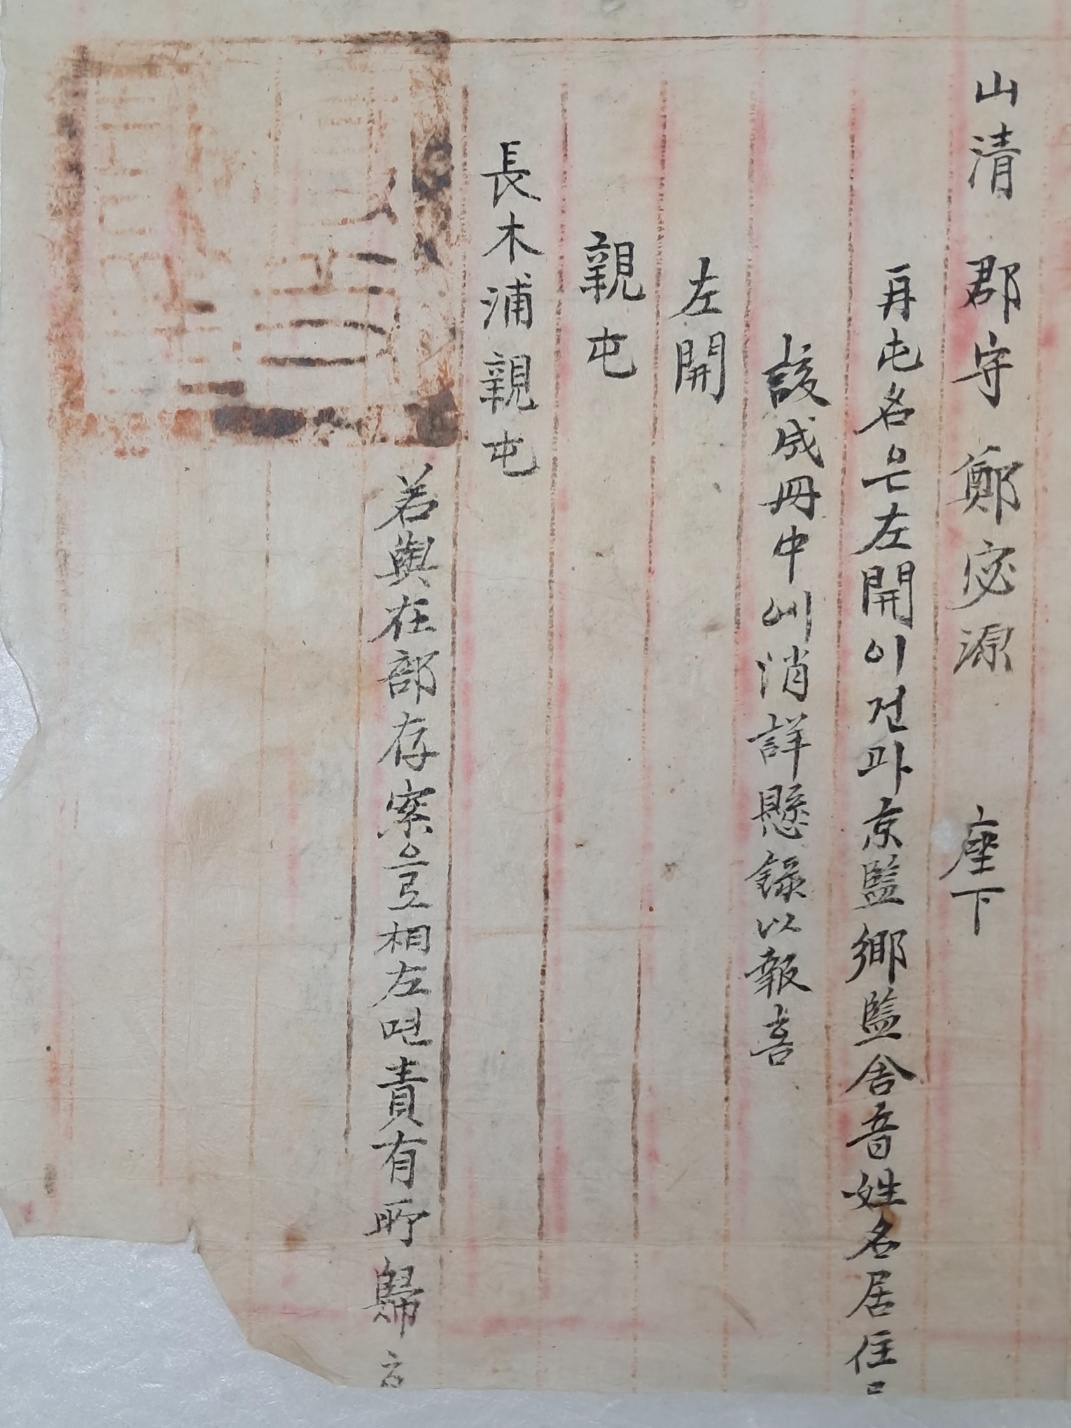 山清 郡守 鄭宓源 座下
再屯名은左開이건과京監鄕監舍音姓名居住
該成冊中에消詳懸錄以報喜
左開
親屯
長木浦親屯
若與在部存案으로相左면責有所歸